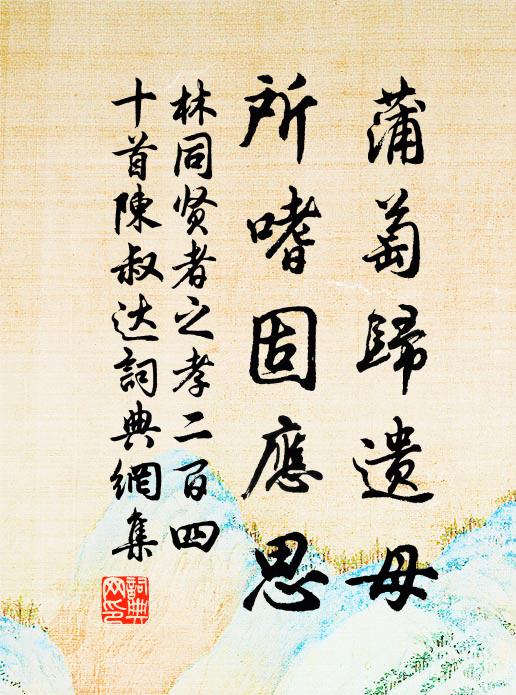 蒲萄歸遺母
所嗜固應思
林同贤者之孝二百四
十首陳叔达詞典網集
詞典网印